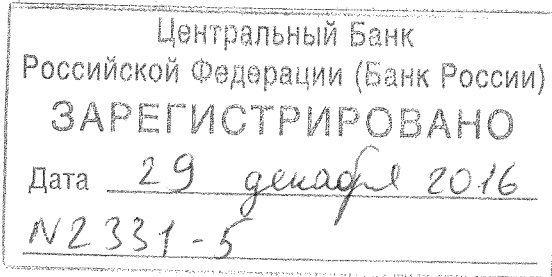 Центральный Банк
Российской Федерации (Банк России)
ЗАРЕГИСТРИРОВАНО
Дата 29 декабря 2016
№2331-5